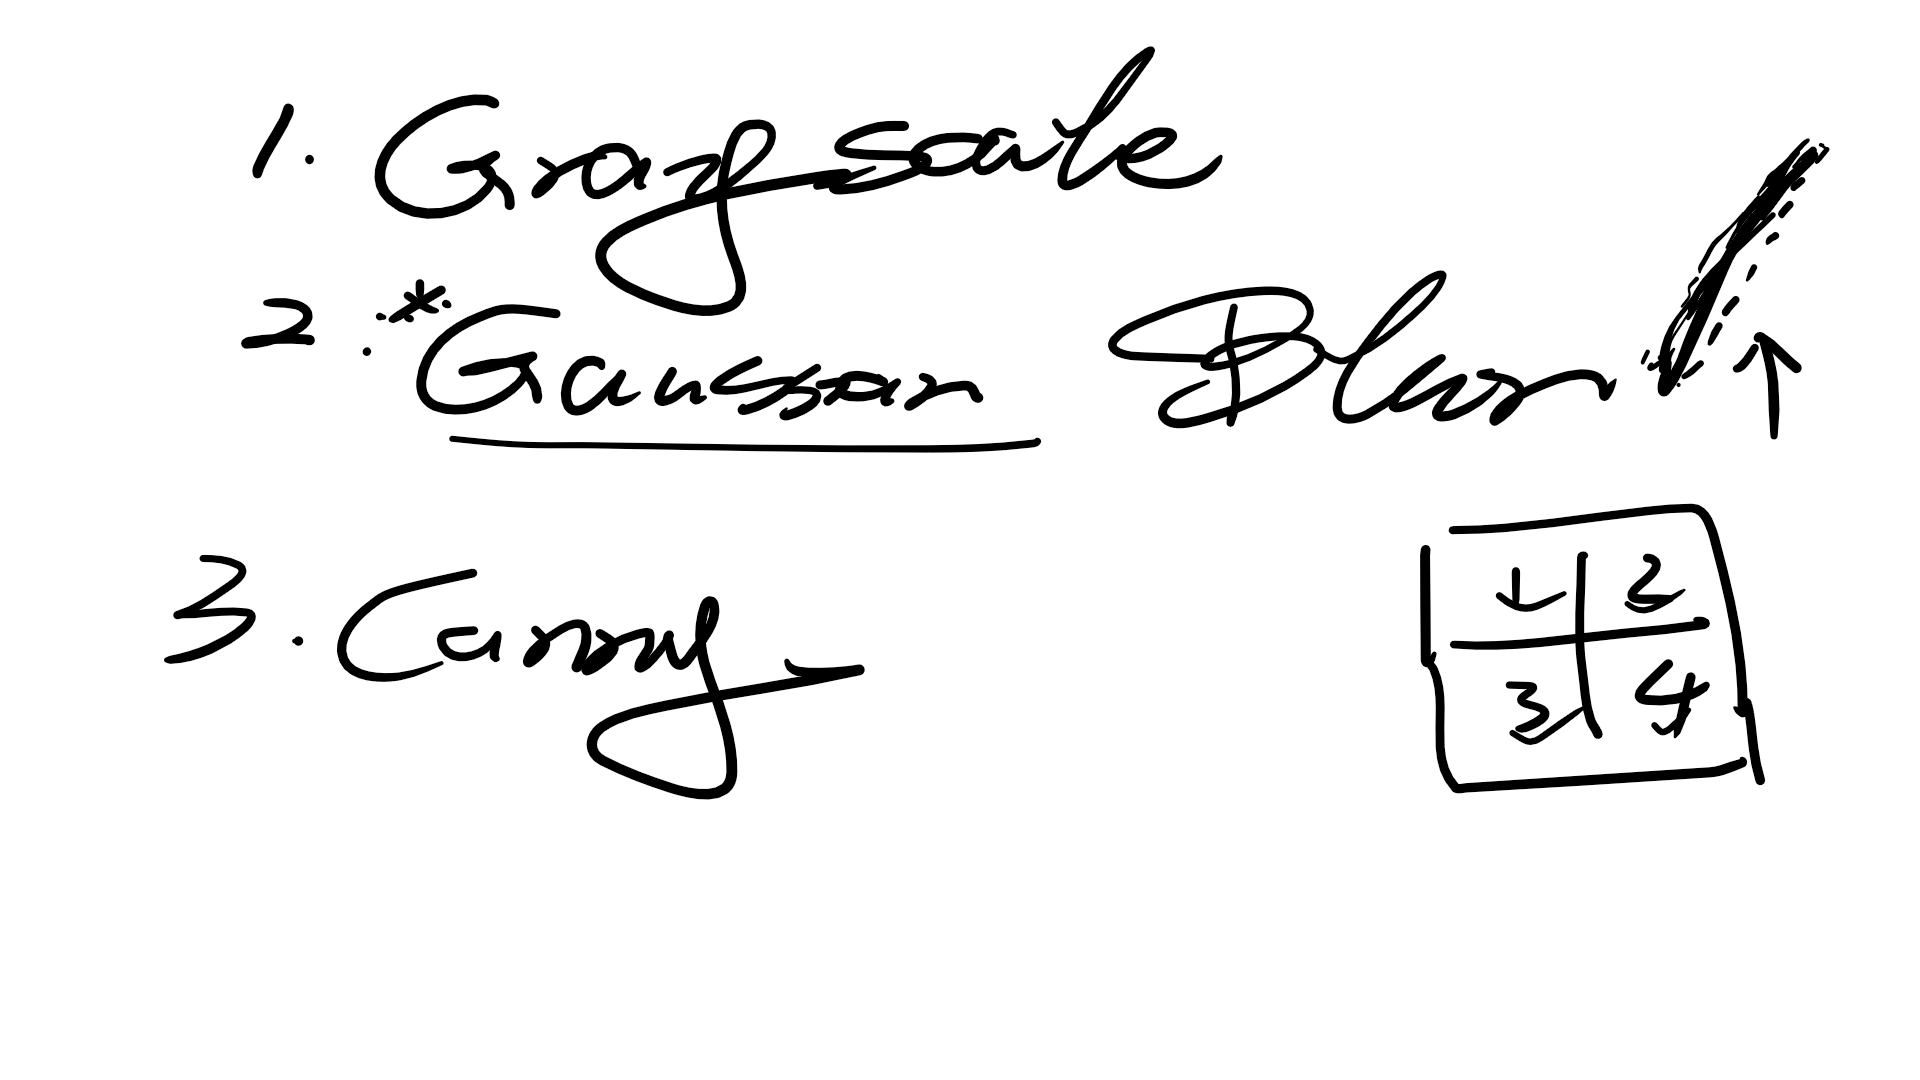 1. Grayscale
2.*Gaussan Blur
3. Canny
1 2
3 4